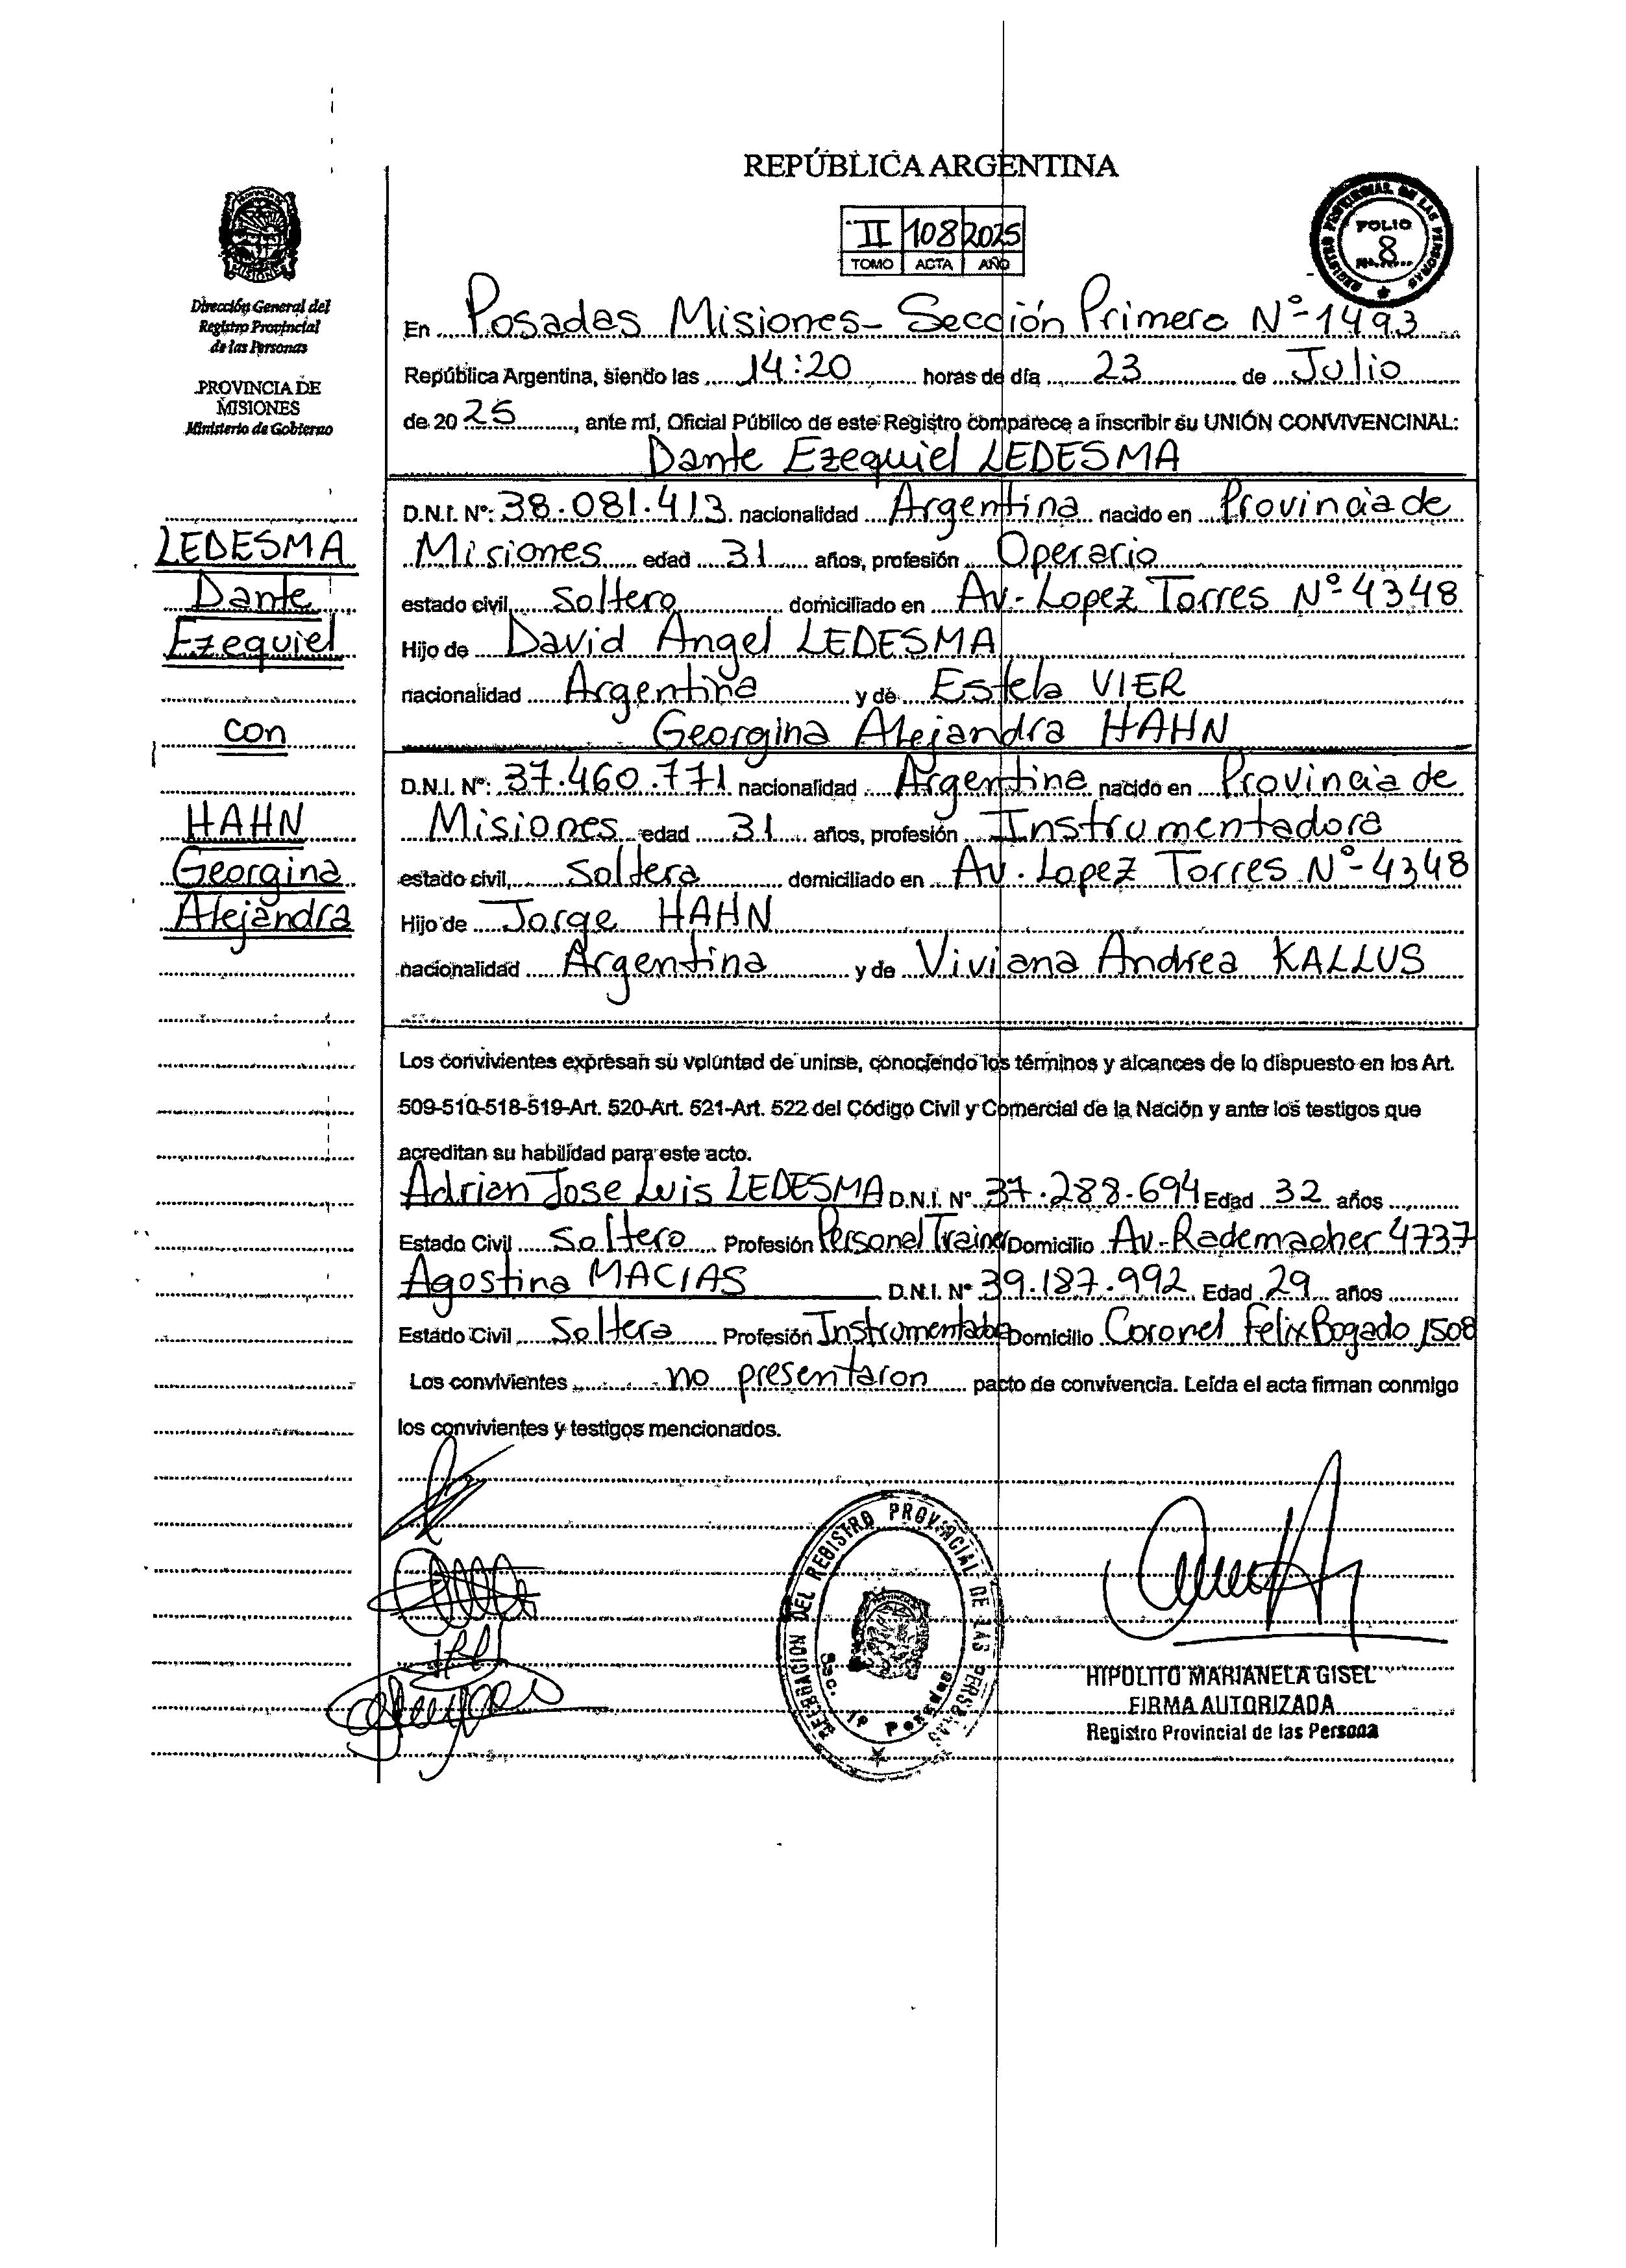 REPÚBLICA ARGENTINA
II 108 2025
TOMO ACTA AÑO
REGISTRO PROVINCIAL DE LAS PERSONAS
FOLIO
Nº 8
Dirección General del
Registro Provincial
de las Personas
PROVINCIA DE
MISIONES
Ministerio de Gobierno
LEDESMA
Dante
Ezequiel
con
HAHN
Georgina
Alejandra
En Posadas Misiones- Sección Primera Nº-1493
República Argentina, siendo las 14:20 horas de día 23 de Julio
de 20 25, ante mí, Oficial Público de este Registro comparece a inscribir su UNIÓN CONVIVENCINAL:
Dante Ezequiel LEDESMA
D.N.I. Nº: 38.081.413 nacionalidad Argentina nacido en Provincia de
Misiones edad 31 años, profesión Operario
estado civil, soltero domiciliado en Av.- Lopez Torres Nº-4348
Hijo de David Angel LEDESMA
nacionalidad Argentina y de Estela VIER
Georgina Alejandra HAHN
D.N.I. Nº: 37.460.771 nacionalidad Argentina nacido en Provincia de
Misiones edad 31 años, profesión Instrumentadora
estado civil, Soltera domiciliado en Av. Lopez Torres Nº-4348
Hijo de Jorge HAHN
nacionalidad Argentina y de Viviana Andrea KALLUS
Los convivientes expresan su voluntad de unirse, conociendo los términos y alcances de lo dispuesto en los Art.
509-510-518-519-Art. 520-Art. 521-Art. 522 del Código Civil y Comercial de la Nación y ante los testigos que
acreditan su habilidad para este acto.
Adrian Jose Luis LEDESMA D.N.I. Nº 37.288.694 Edad 32 años
Estado Civil Soltero Profesión Personal Trainer Domicilio Av.-Rademacher 4737
Agostina MACIAS D.N.I. Nº 39.187.992 Edad 29 años
Estado Civil Soltera Profesión Domicilio Coronel Felix Bogado 1508
Los convivientes no presentaron pacto de convivencia. Leída el acta firman conmigo
los convivientes y testigos mencionados.
DELEGACION DEL REGISTRO PROVINCIAL DE LAS PERSONAS
Sec. 1º Posadas
HIPOLITO MARIANELA GISEL
FIRMA AUTORIZADA
Registro Provincial de las Persona